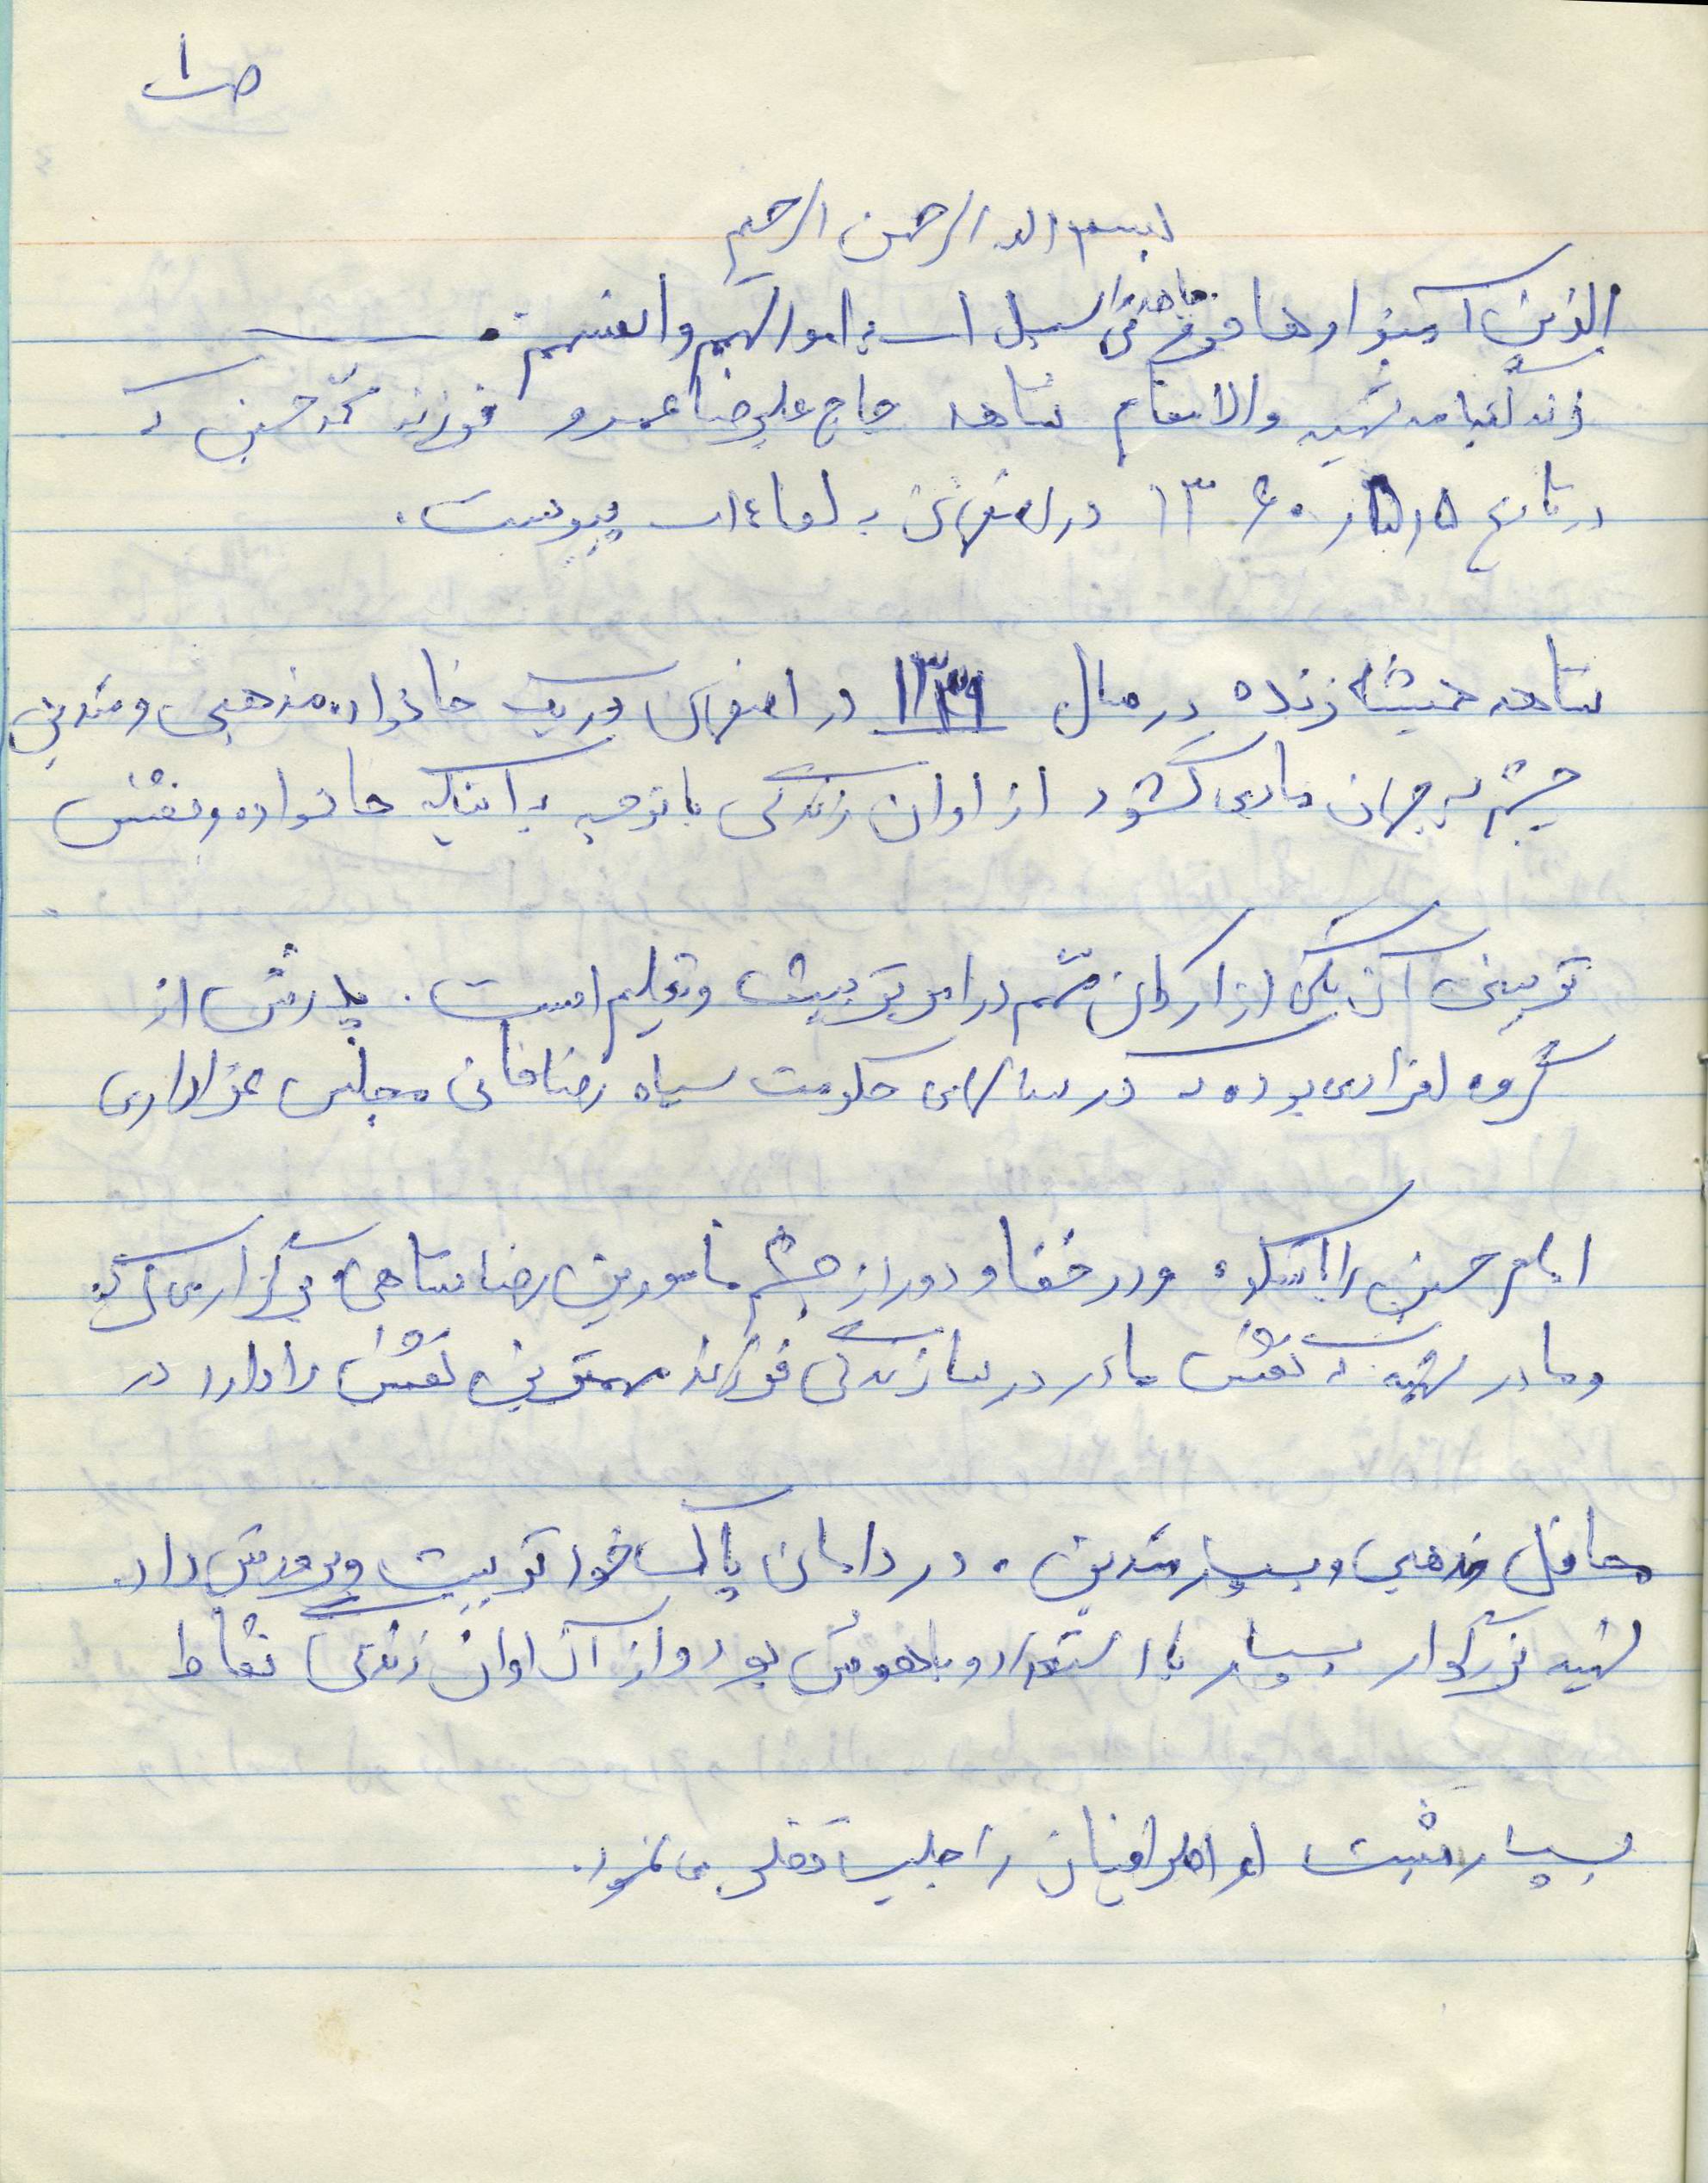 ص ۱
بسم الله الرحمن الرحیم
الذین آمنوا وهاجروا و جاهدوا فی سبیل الله باموالهم وانفسهم.
زندگینامه شهید والامقام شاهد حاج علیرضا عمرو فرزند محمدحسین که
در تاریخ ۱۵ر۵ر۱۳۶۰ در اصفهان به لقاءالله پیوست.
شاهد همیشه زنده در سال ۱۳۳۹ در اصفهان در یک خانواده مذهبی و متدین
چشم به جهان مادی گشود از اوان زندگی با توجه به اینکه خانواده و نقش
تربیتی آن یکی از ارکان مهم در امر تربیت و تعلیم است. پدرش از
گروه افرادی بوده که در سالهای حکومت سیاه رضاخانی مجلس عزاداری
امام حسین را باشکوه و در خفا و دور از چشم مأمورین رضاشاهی برگزار می‌کرد
و مادر شهید که نقش مادر در سازندگی فرزند مهمترین نقش را دارد در
محافل مذهبی و بسیار متدین. در دامان پاک خود تربیت و پرورش داد.
شهید بزرگوار بسیار با استعداد و باهوش بود و از آن اوان زندگی نقاط
بسیار مثبت او اطرافیان را جلب توجه می‌نمود.